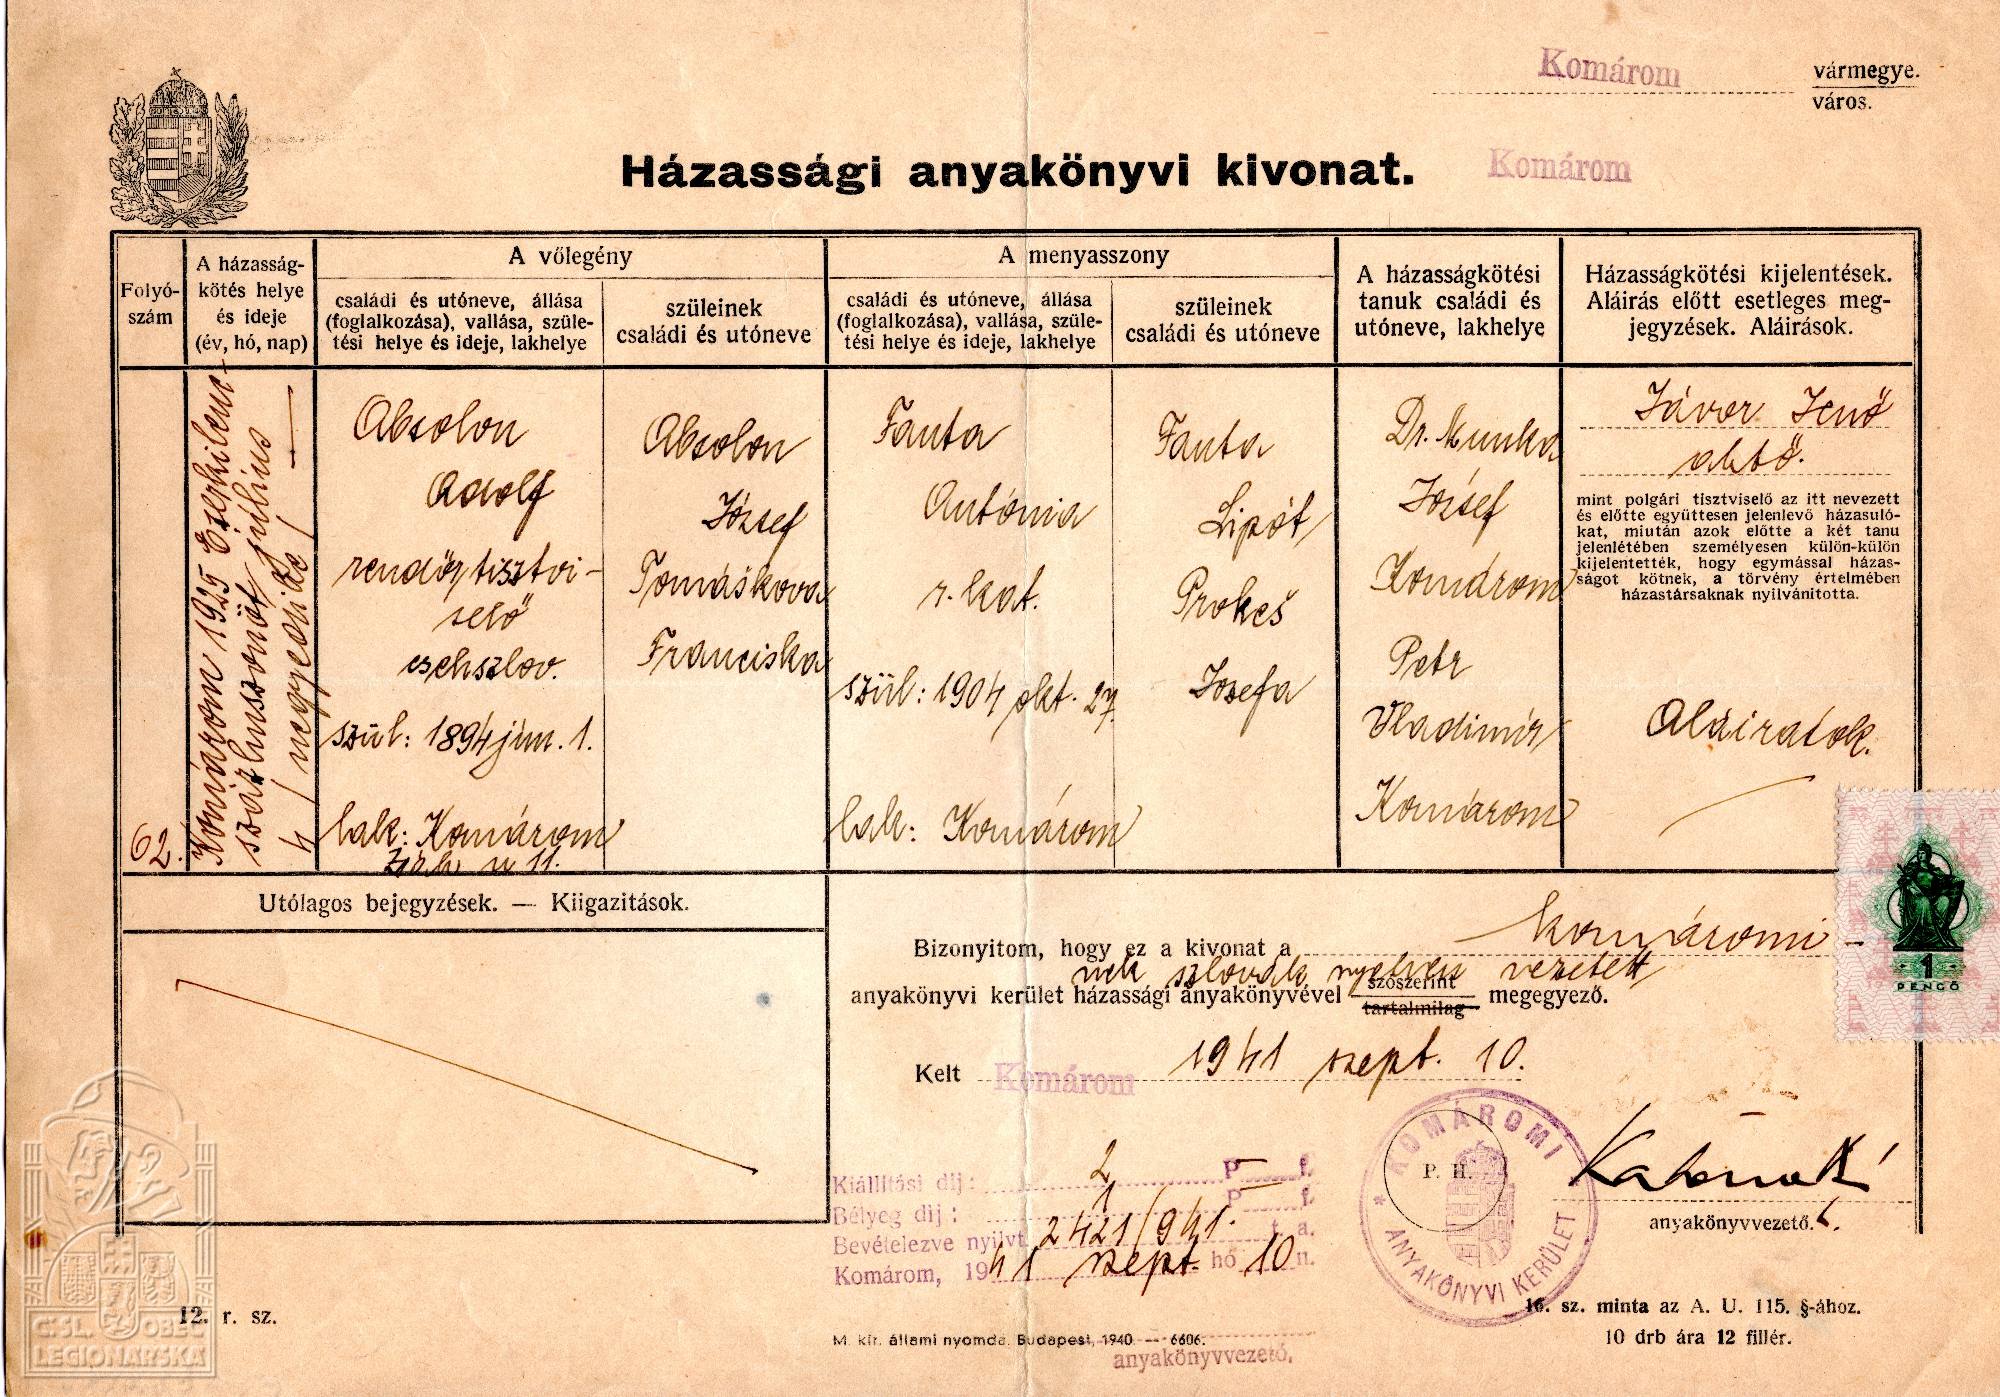 Komárom
vármegye.
város.
Házassági anyakönyvi kivonat.
Komárom
Folyó-
szám
A házasság-
kötés helye
és ideje
(év, hó, nap)
A vőlegény
családi és utóneve, állása
(foglalkozása), vallása, szüle-
tési helye és ideje, lakhelye
szüleinek
családi és utóneve
A menyasszony
családi és utóneve, állása
(foglalkozása), vallása, szüle-
tési helye és ideje, lakhelye
szüleinek
családi és utóneve
A házasságkötési
tanuk családi és
utóneve, lakhelye
Házasságkötési kijelentések.
Aláirás előtt esetleges meg-
jegyzések. Aláirások.
62.
Komárom 1925 Ezerkilenc-
százhuszonöt július
4 / negyedike /
Absolon
Adolf
rendőrtisztvi-
selő
csehszlov.
szül: 1894 jún. 1.
lak: Komárom
11.
Absolon
József
Tomáškova
Franciska
Fanta
Antónia
r. kat.
szül: 1904 okt. 27.
lak: Komárom
Fanta
Lipót
Prokeš
Josefa
Dr. Munka
József
Komárom
Petr
Vladimír
Komárom
Jávor Jenő
mint polgári tisztviselő az itt nevezett
és előtte együttesen jelenlevő házasuló-
kat, miután azok előtte a két tanu
jelenlétében személyesen külön-külön
kijelentették, hogy egymással házas-
ságot kötnek, a törvény értelmében
házastársaknak nyilvánitotta.
Aláiratok.
Utólagos bejegyzések. — Kiigazitások.
Bizonyitom, hogy ez a kivonat a komáromi
nek szlovák nyelven vezetett
anyakönyvi kerület házassági anyakönyvével szószerint
tartalmilag megegyező.
1
PENGŐ
Kelt Komárom 1941 szept. 10.
Kiállitási dij: 2 P — f.
Bélyeg dij: 1 P — f.
Bevételezve nyilvt. 2421/941. t. a.
Komárom, 1941 szept. hó 10 n.
anyakönyvvezető.
P. H.
KOMÁROMI
* ANYAKÖNYVI KERÜLET *
anyakönyvvezető.
12. r. sz.
M. kir. állami nyomda, Budapest, 1940 — 6606.
16. sz. minta az A. U. 115. §-ához.
10 drb ára 12 fillér.
ČSL. OBEC
LEGIONÁŘSKÁ